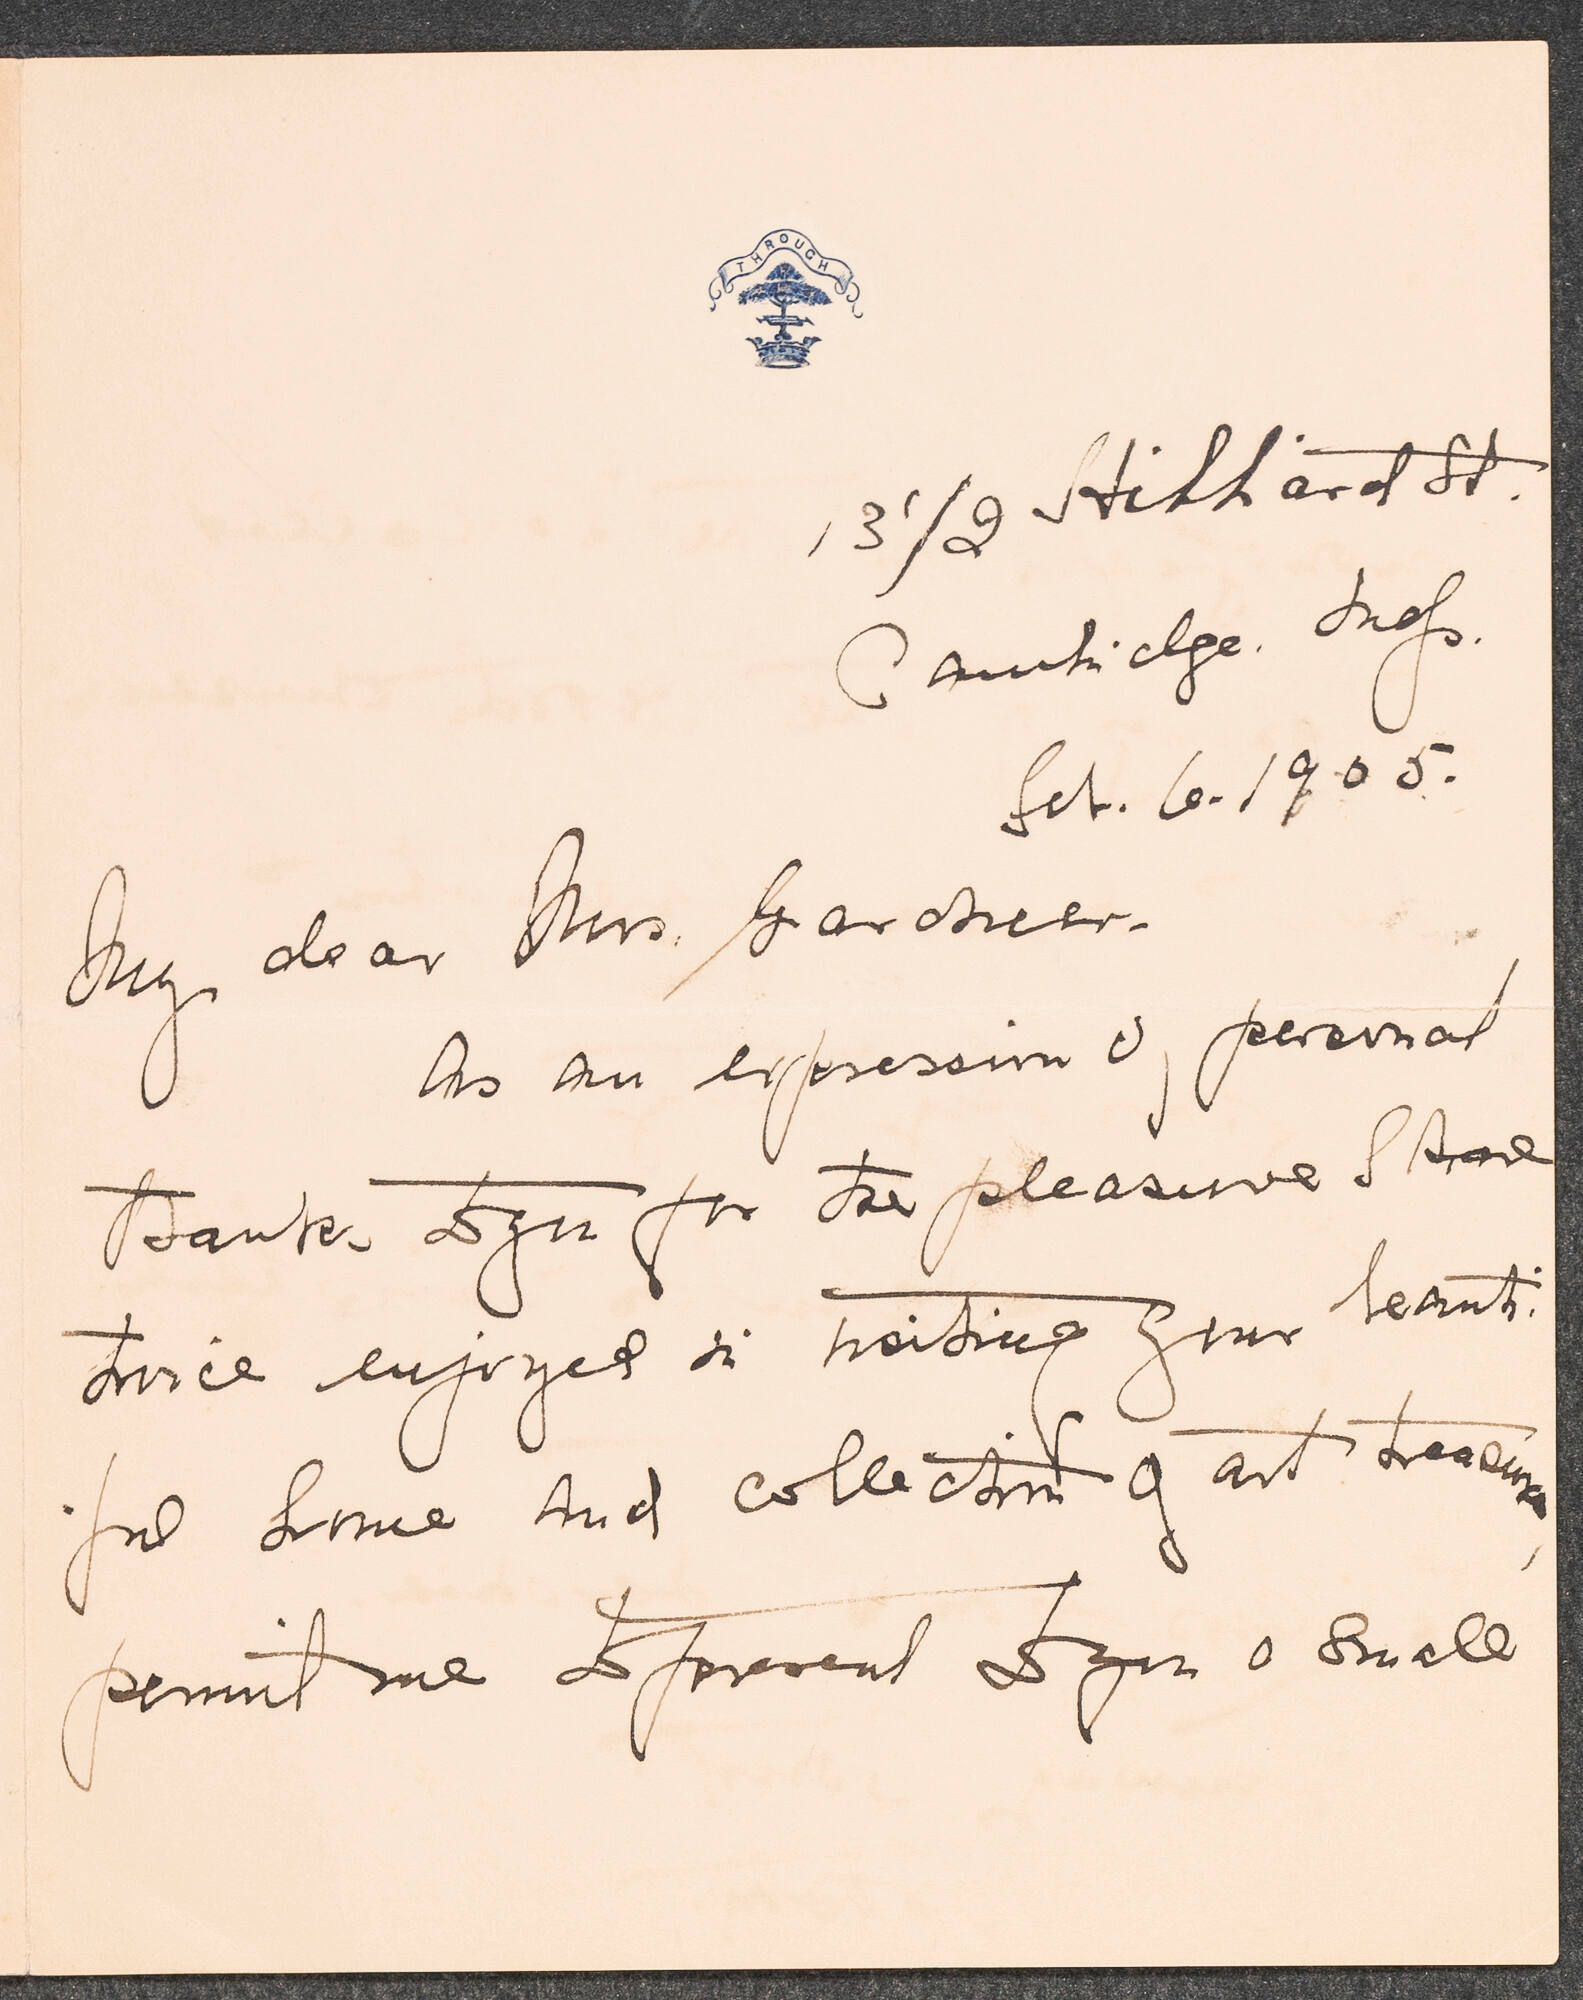 THROUGH
13 1/2 Hilliard St.
Cambridge. Mass.
Feb. 6. 1905.
My dear Mrs. Gardner.
As an expression of personal
thanks to you for the pleasure I have
twice enjoyed in visiting your beauti-
ful home and collection of art treasures,
permit me to present to you a small